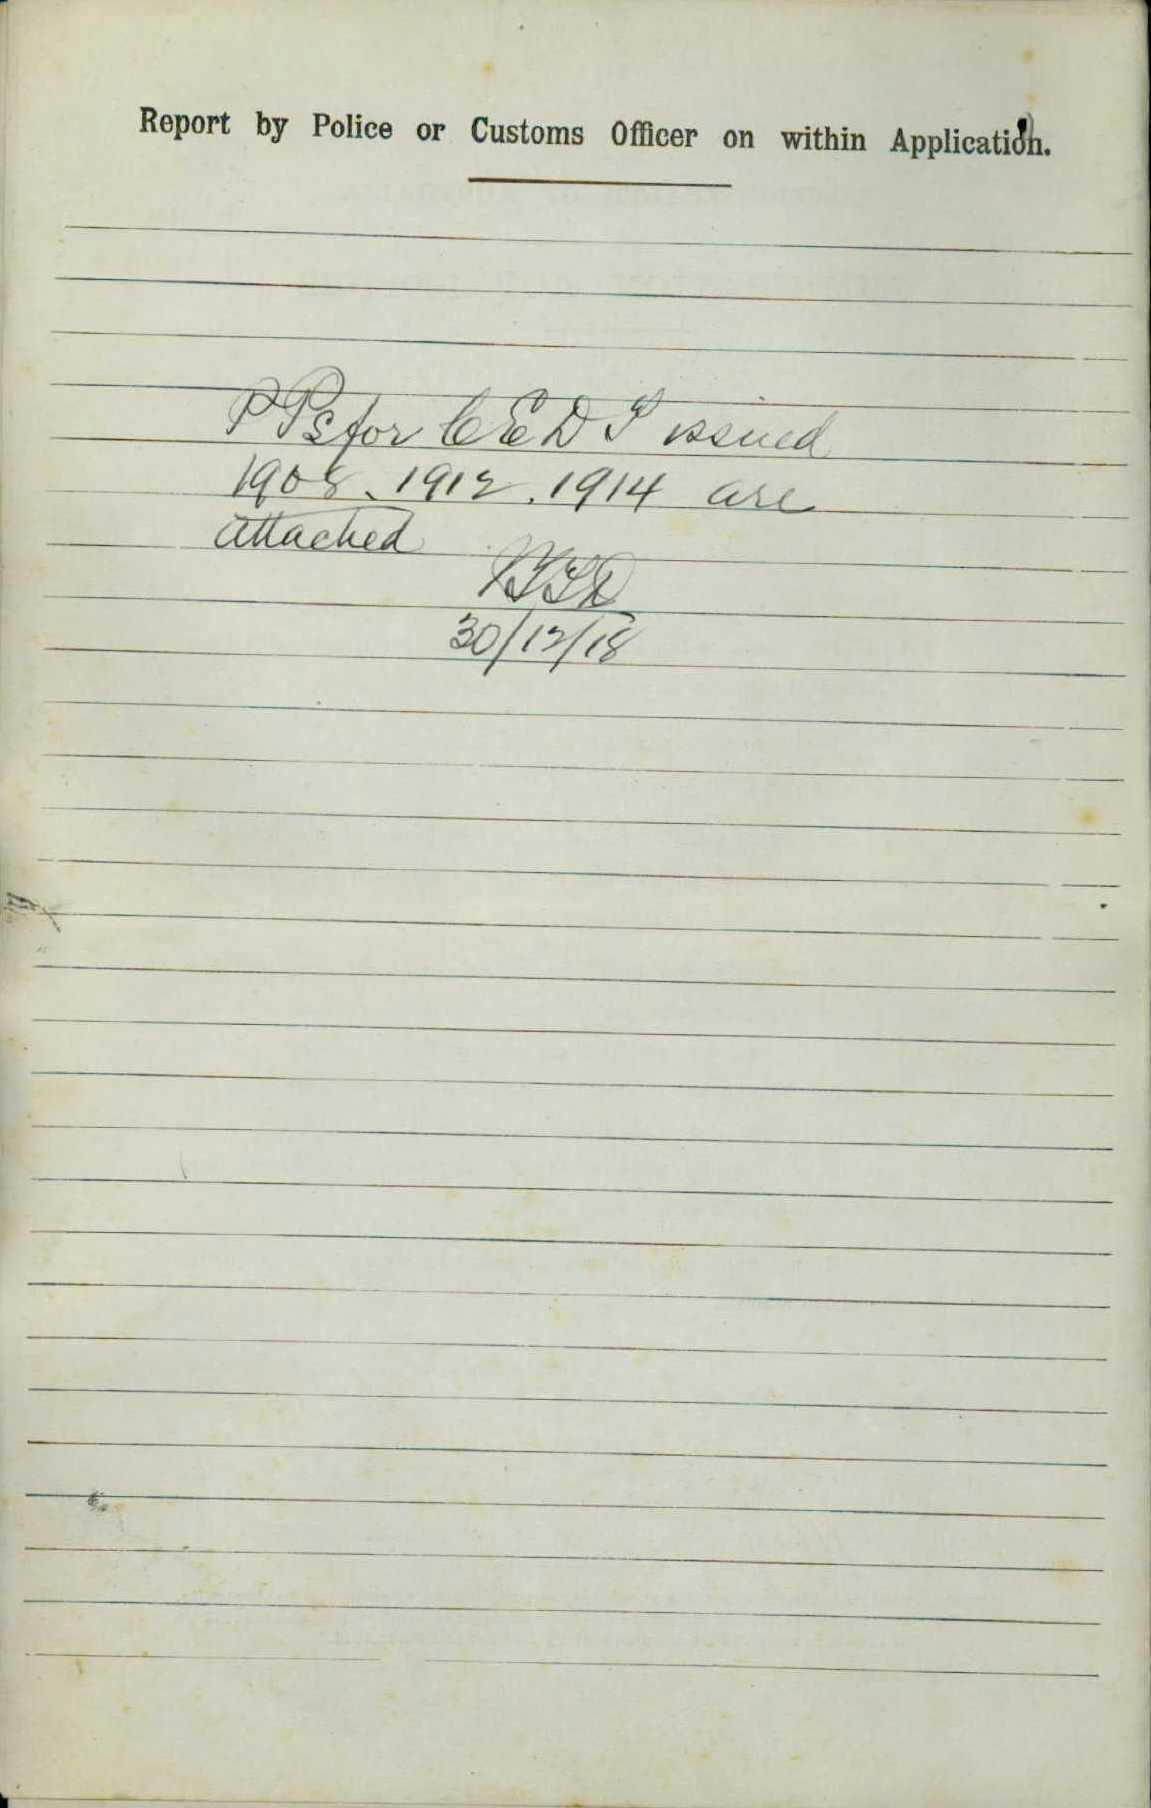 Report by Police or Customs Officer on within Application.
P Ps for C E D T issued
1908. 1912. 1914 are
attached
30/12/18